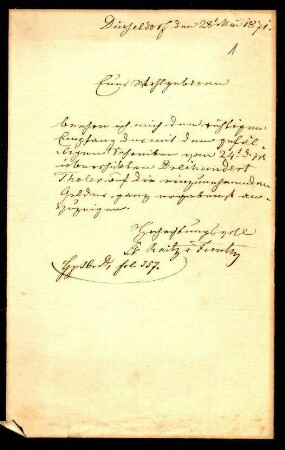 Düsseldorf den 28t Mai 1871.
1
Euer Wohlgeboren
beehre ich mich den richtigen
Empfang der mit dem gefäl-
ligen Schreiben vom 24t d. Js
überschickten Dreihundert
Thaler auf die einzunehmenden
Gelder, ganz ergebenst an-
zuzeigen.
Hochachtungsvoll
fol. 557.